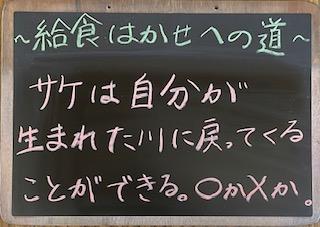 ～給食はかせへの道～
サケは自分が
生まれた川に戻ってくる
ことができる。〇か✕か。